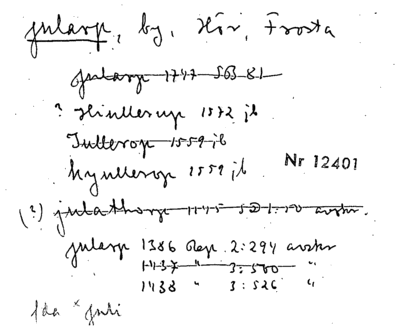 Jularp, by, Hör, Frosta
Jularp 1747 SB 81
? Hiullerup 1572 jb
Jullerop 1559 jb
hyullerop 1559 jb
Nr 12401
(?) julathorp 1145 SD 1:50 avskr.
jularp 1386 Rep. 2:294 avskr
1437 " 3:500 "
1438 " 3:526 "
fda * juli